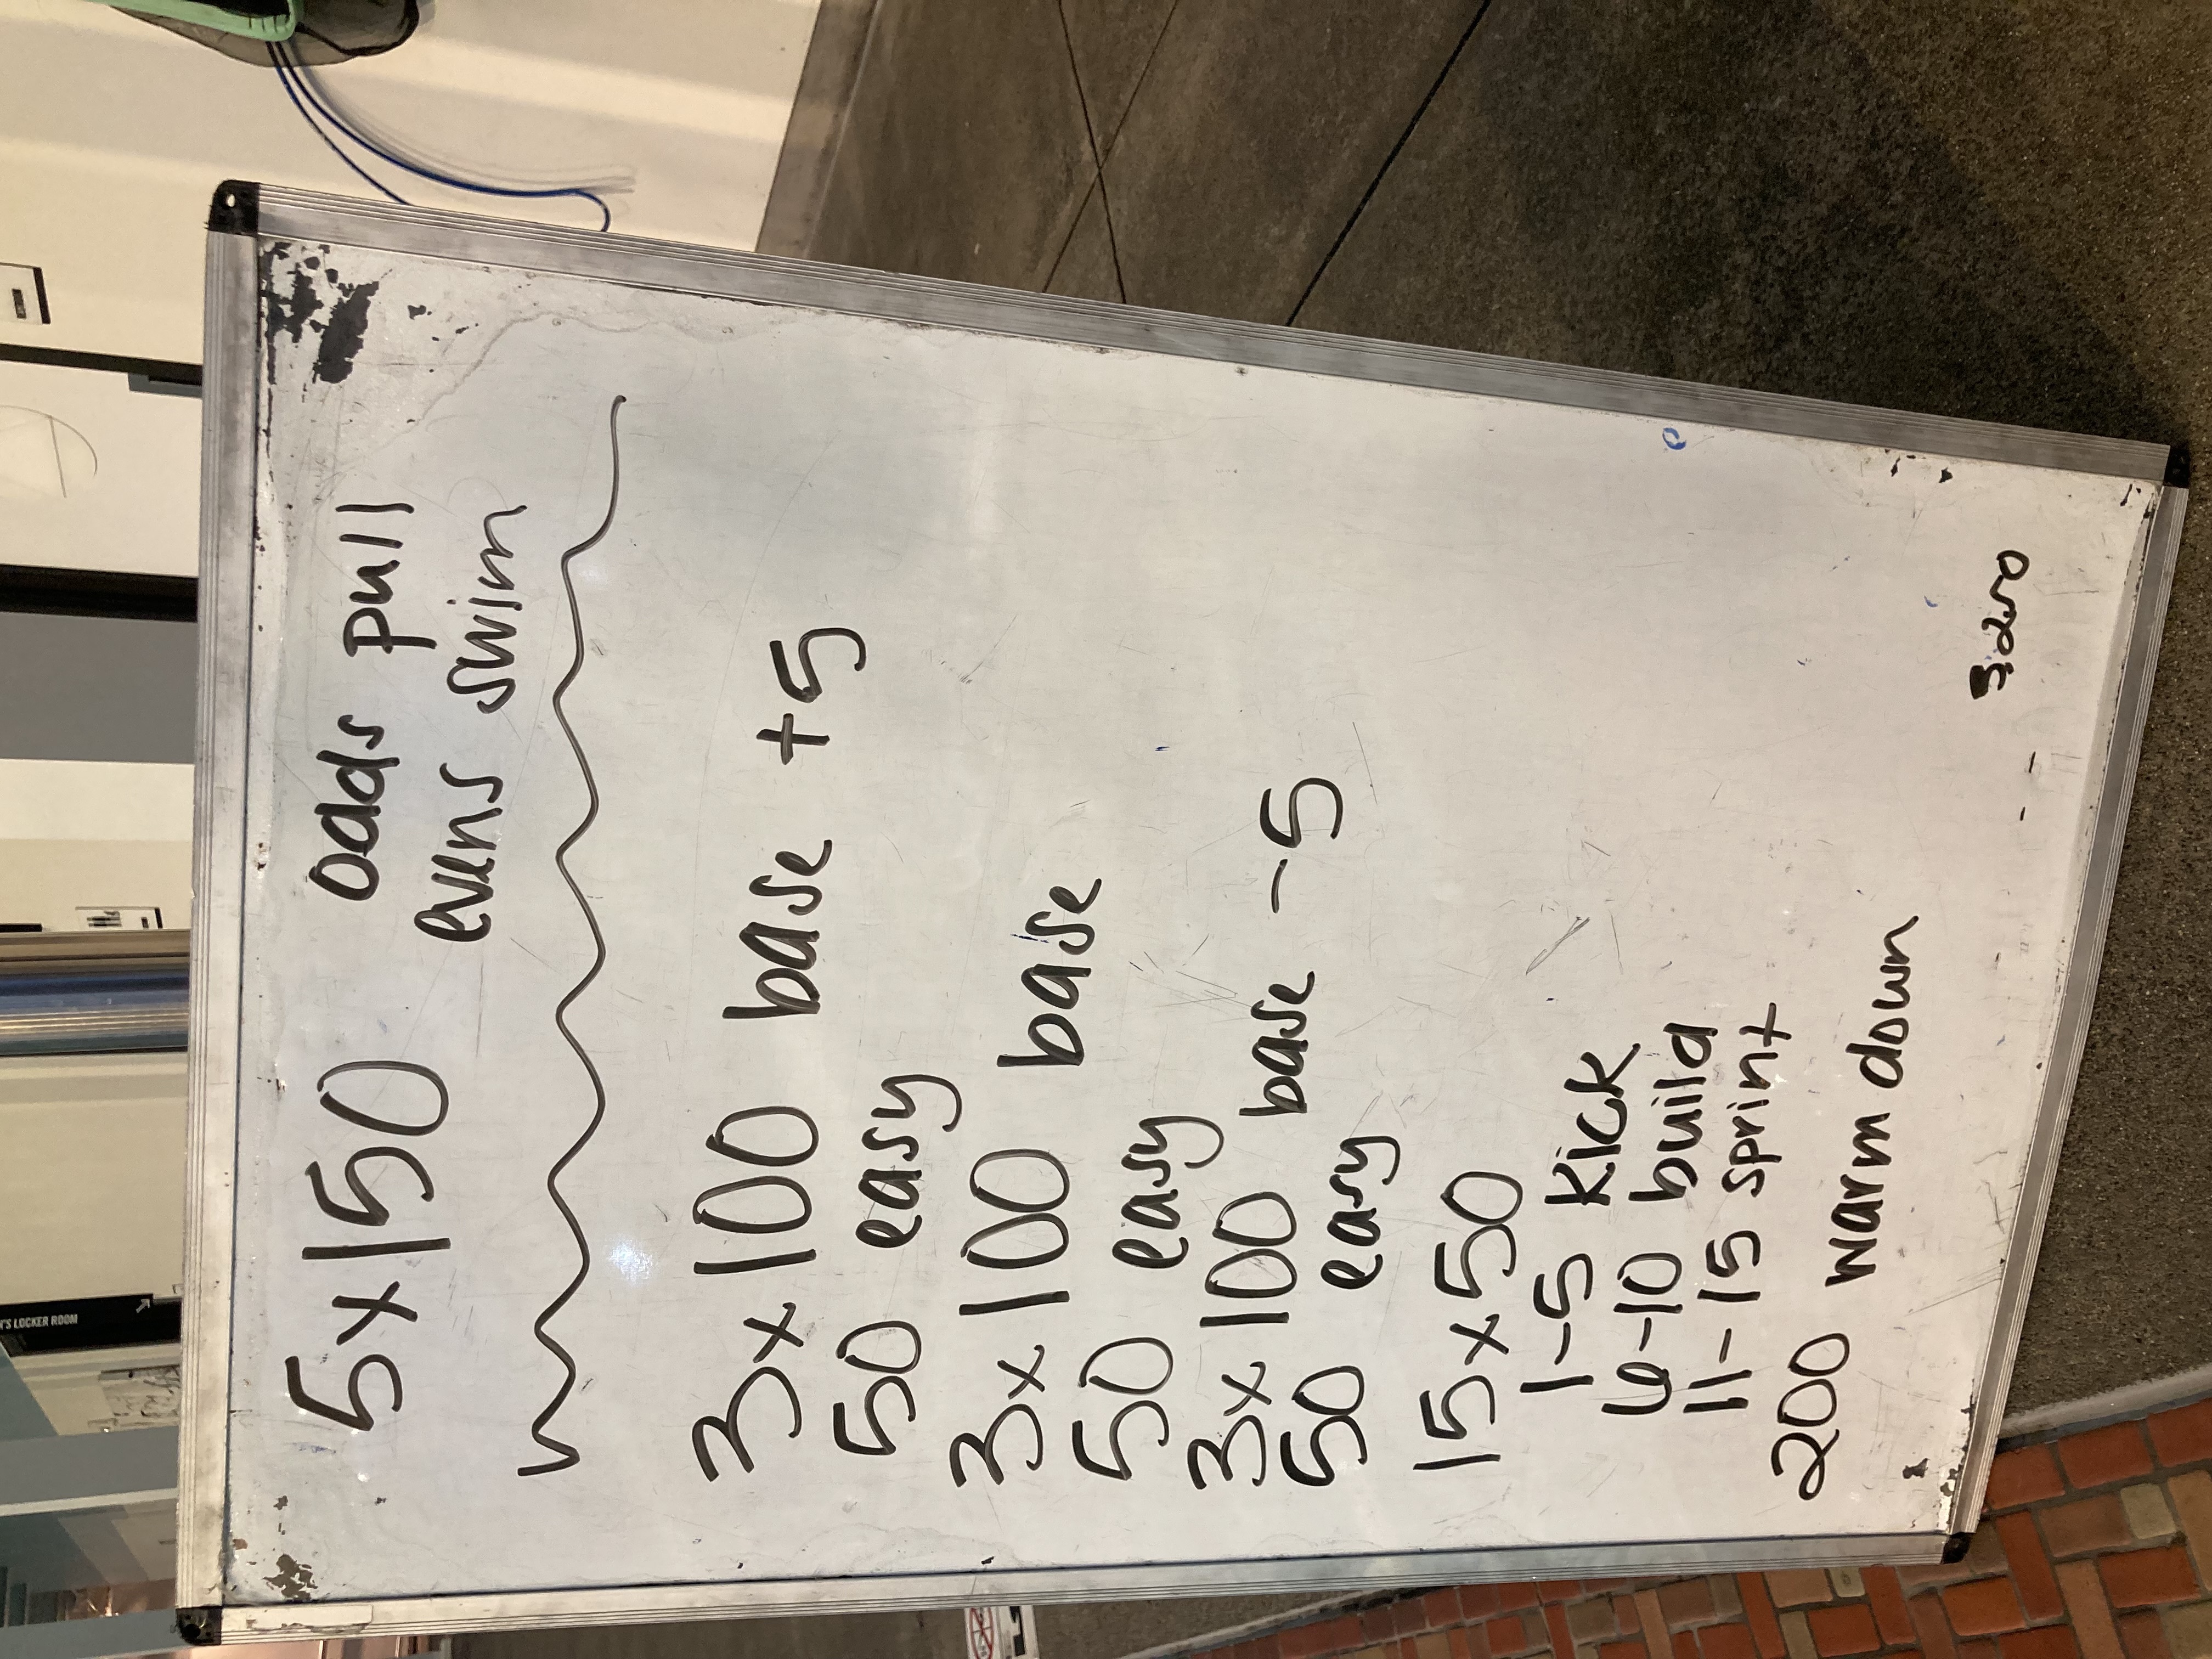 5x150 odds pull
evens swim
3x100 base +5
50 easy
3x100 base
50 easy
3x100 base -5
50 easy
15x50
1-5 kick
6-10 build
11-15 sprint
200 warm down
'S LOCKER ROOM